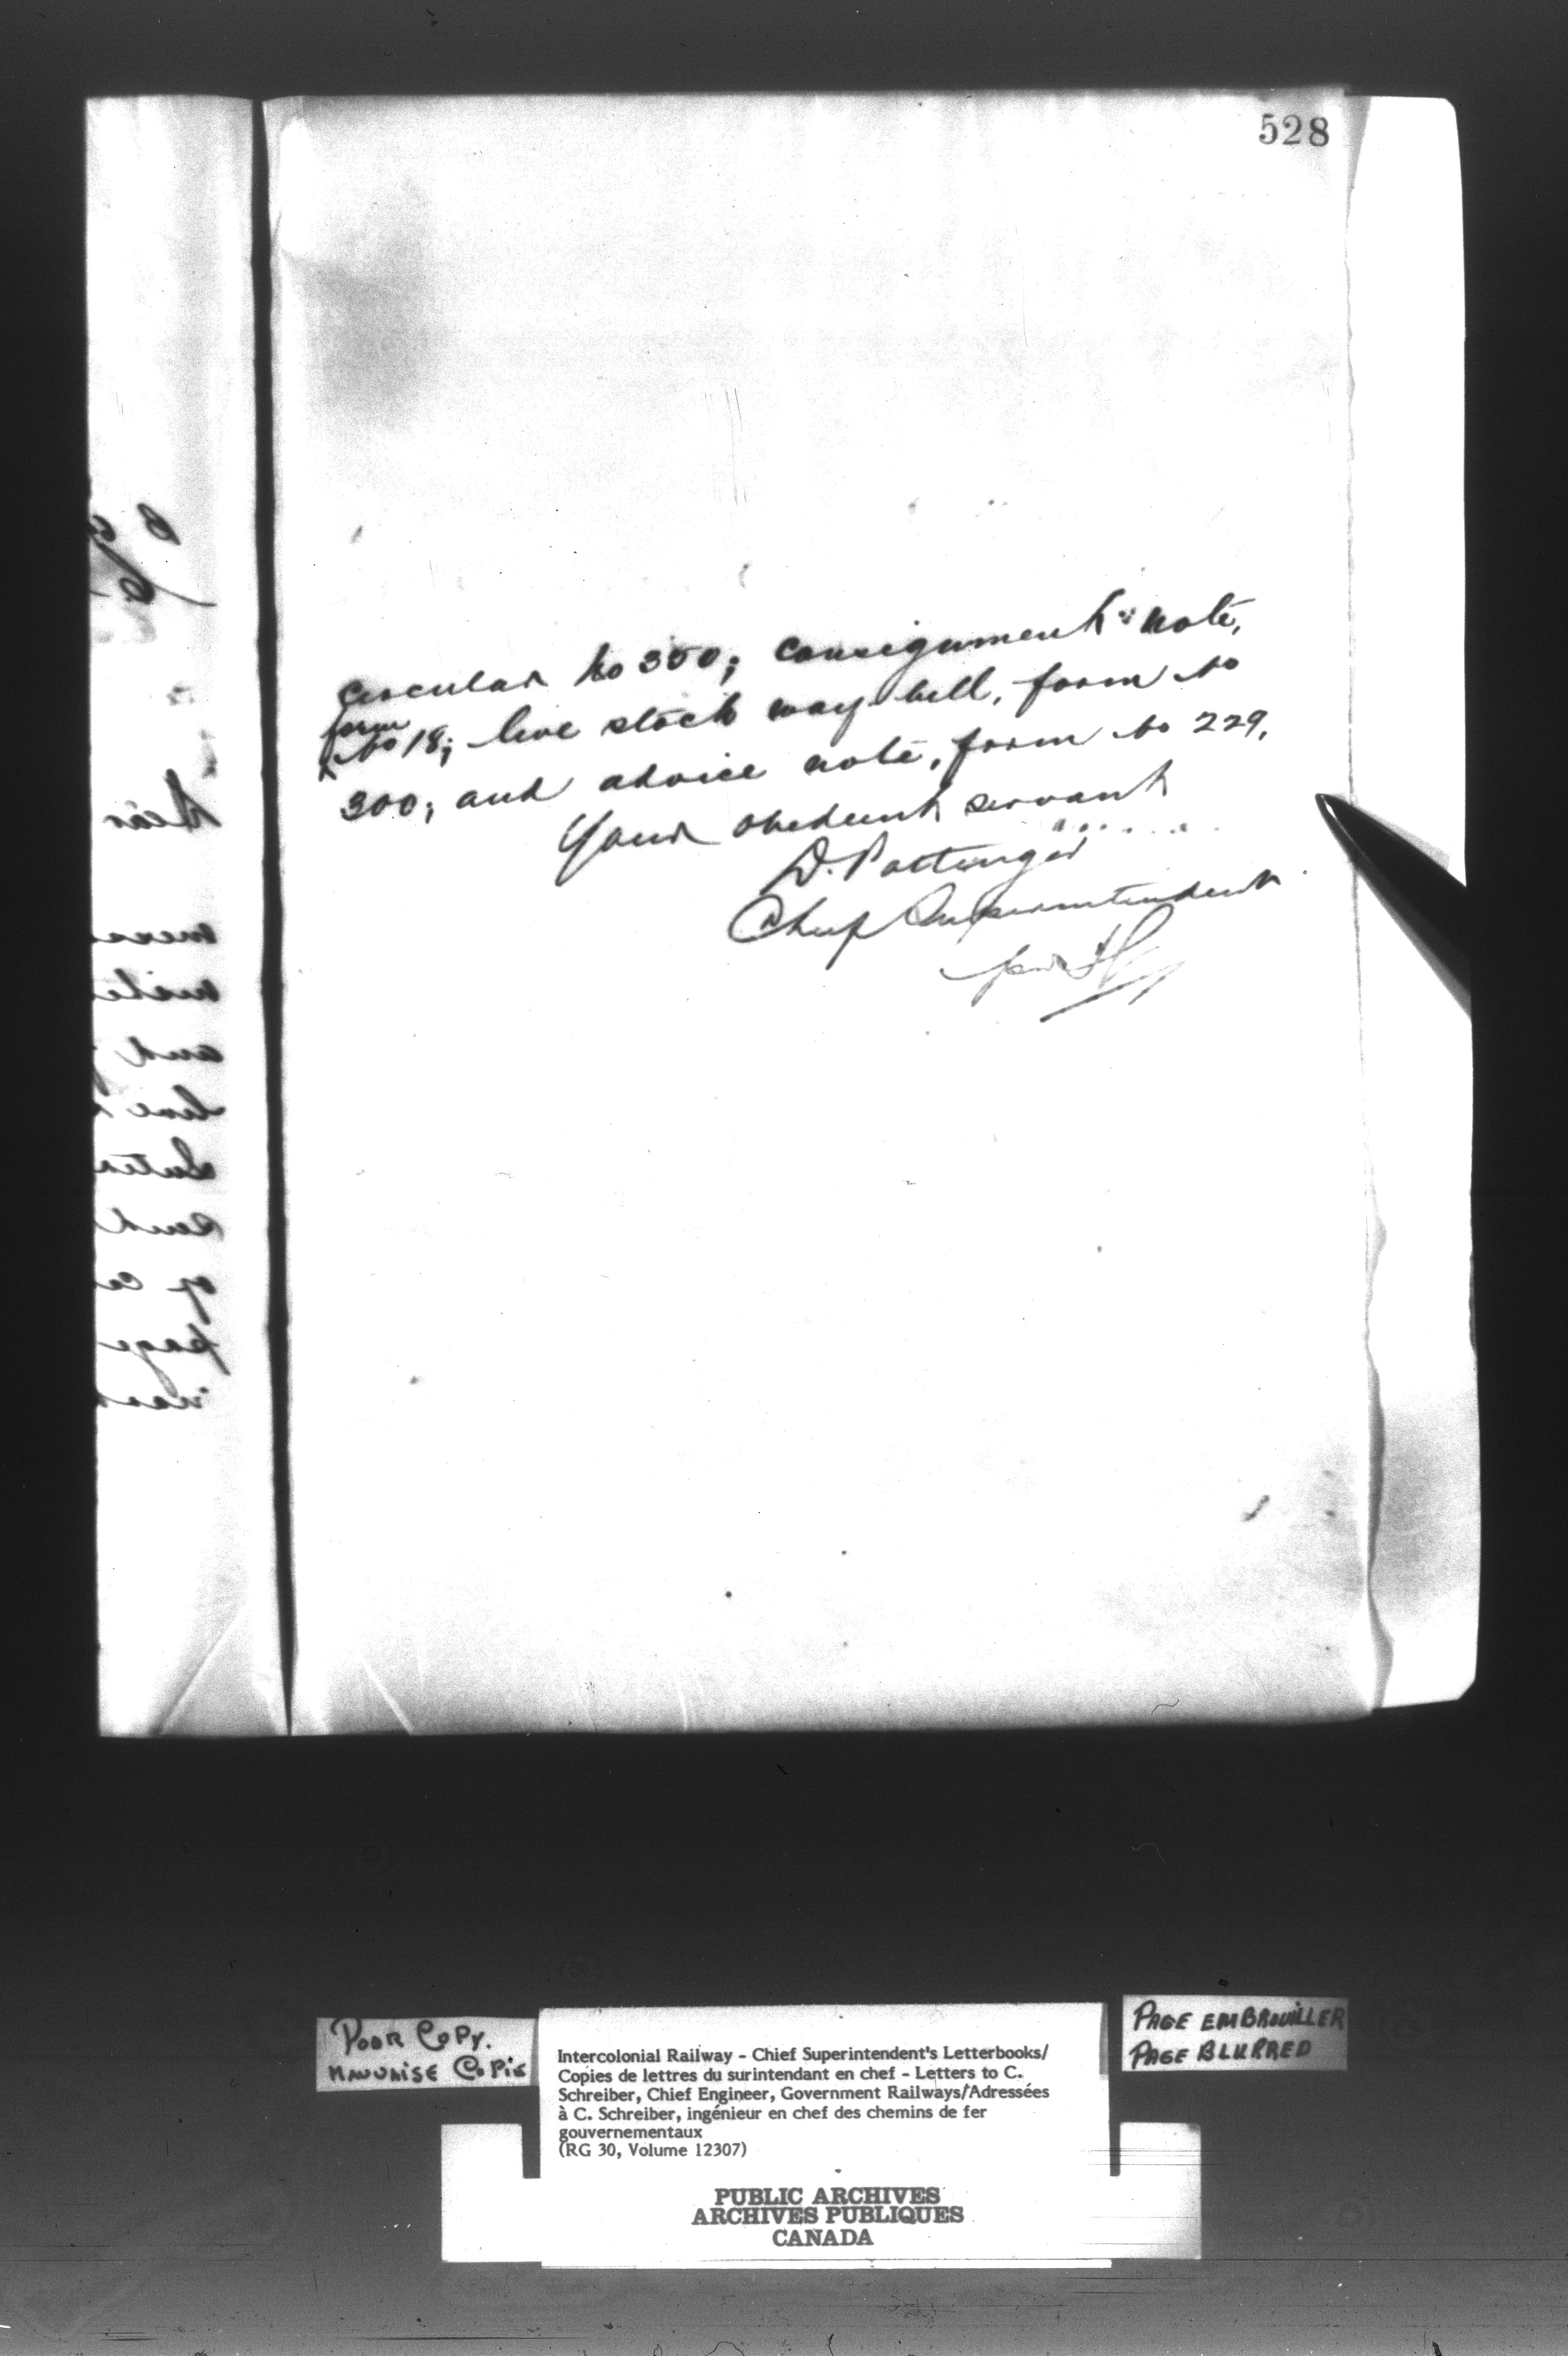 528
circular No 350; consignment note,
form
No 18; live stock way bill, form No
300; and advice note, form No 229.
Your obedient servant
D. Pottinger
Chief Superintendent
per
Dear
and
live
page
POOR COPY.
MAUVAISE COPIE
Intercolonial Railway - Chief Superintendent's Letterbooks/
Copies de lettres du surintendant en chef - Letters to C.
Schreiber, Chief Engineer, Government Railways/Adressées
à C. Schreiber, ingénieur en chef des chemins de fer
gouvernementaux
(RG 30, Volume 12307)
PUBLIC ARCHIVES
ARCHIVES PUBLIQUES
CANADA
PAGE EMBROUILLER
PAGE BLURRED